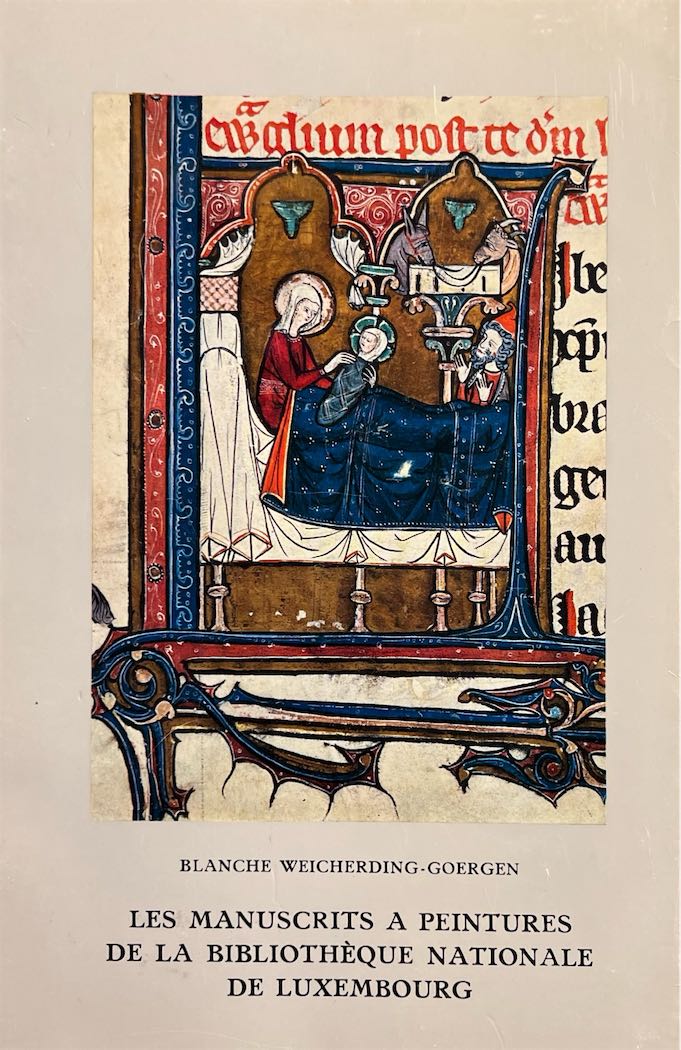 ewāglium post te dm l
ew
Ibe
xp̄i
bra
gen
au
Ja
BLANCHE WEICHERDING-GOERGEN
LES MANUSCRITS A PEINTURES
DE LA BIBLIOTHÈQUE NATIONALE
DE LUXEMBOURG